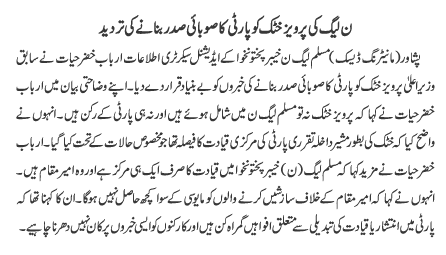 ن لیگ کی پرویز خٹک کو پارٹی کا صوبائی صدر بنانے کی تردید
پشاور (مانیٹرنگ ڈیسک) مسلم لیگ ن خیبر پختونخوا کے ایڈیشنل سیکرٹری اطلاعات ارباب خضر حیات نے سابق
وزیر اعلیٰ پرویز خٹک کو پارٹی کا صوبائی صدر بنانے کی خبروں کو بے بنیاد قرار دے دیا۔ اپنے وضاحتی بیان میں ارباب
خضر حیات نے کہا کہ پرویز خٹک نہ تو مسلم لیگ ن میں شامل ہوئے ہیں اور نہ ہی پارٹی کے رکن ہیں۔ انہوں نے
واضح کیا کہ خٹک کی بطور مشیر داخلہ تقرری پارٹی کی مرکزی قیادت کا فیصلہ تھا جو مخصوص حالات کے تحت کیا گیا۔ ارباب
خضر حیات نے مزید کہا کہ مسلم لیگ (ن) خیبر پختونخوا میں قیادت کا صرف ایک ہی مرکز ہے اور وہ امیر مقام ہیں۔
انہوں نے کہا کہ امیر مقام کے خلاف سازشیں کرنے والوں کو مایوسی کے سوا کچھ حاصل نہیں ہوگا۔ ان کا کہنا تھا کہ
پارٹی میں انتشار یا قیادت کی تبدیلی سے متعلق افواہیں گمراہ کن ہیں اور کارکنوں کو ایسی خبروں پر کان نہیں دھرنا چاہیے۔